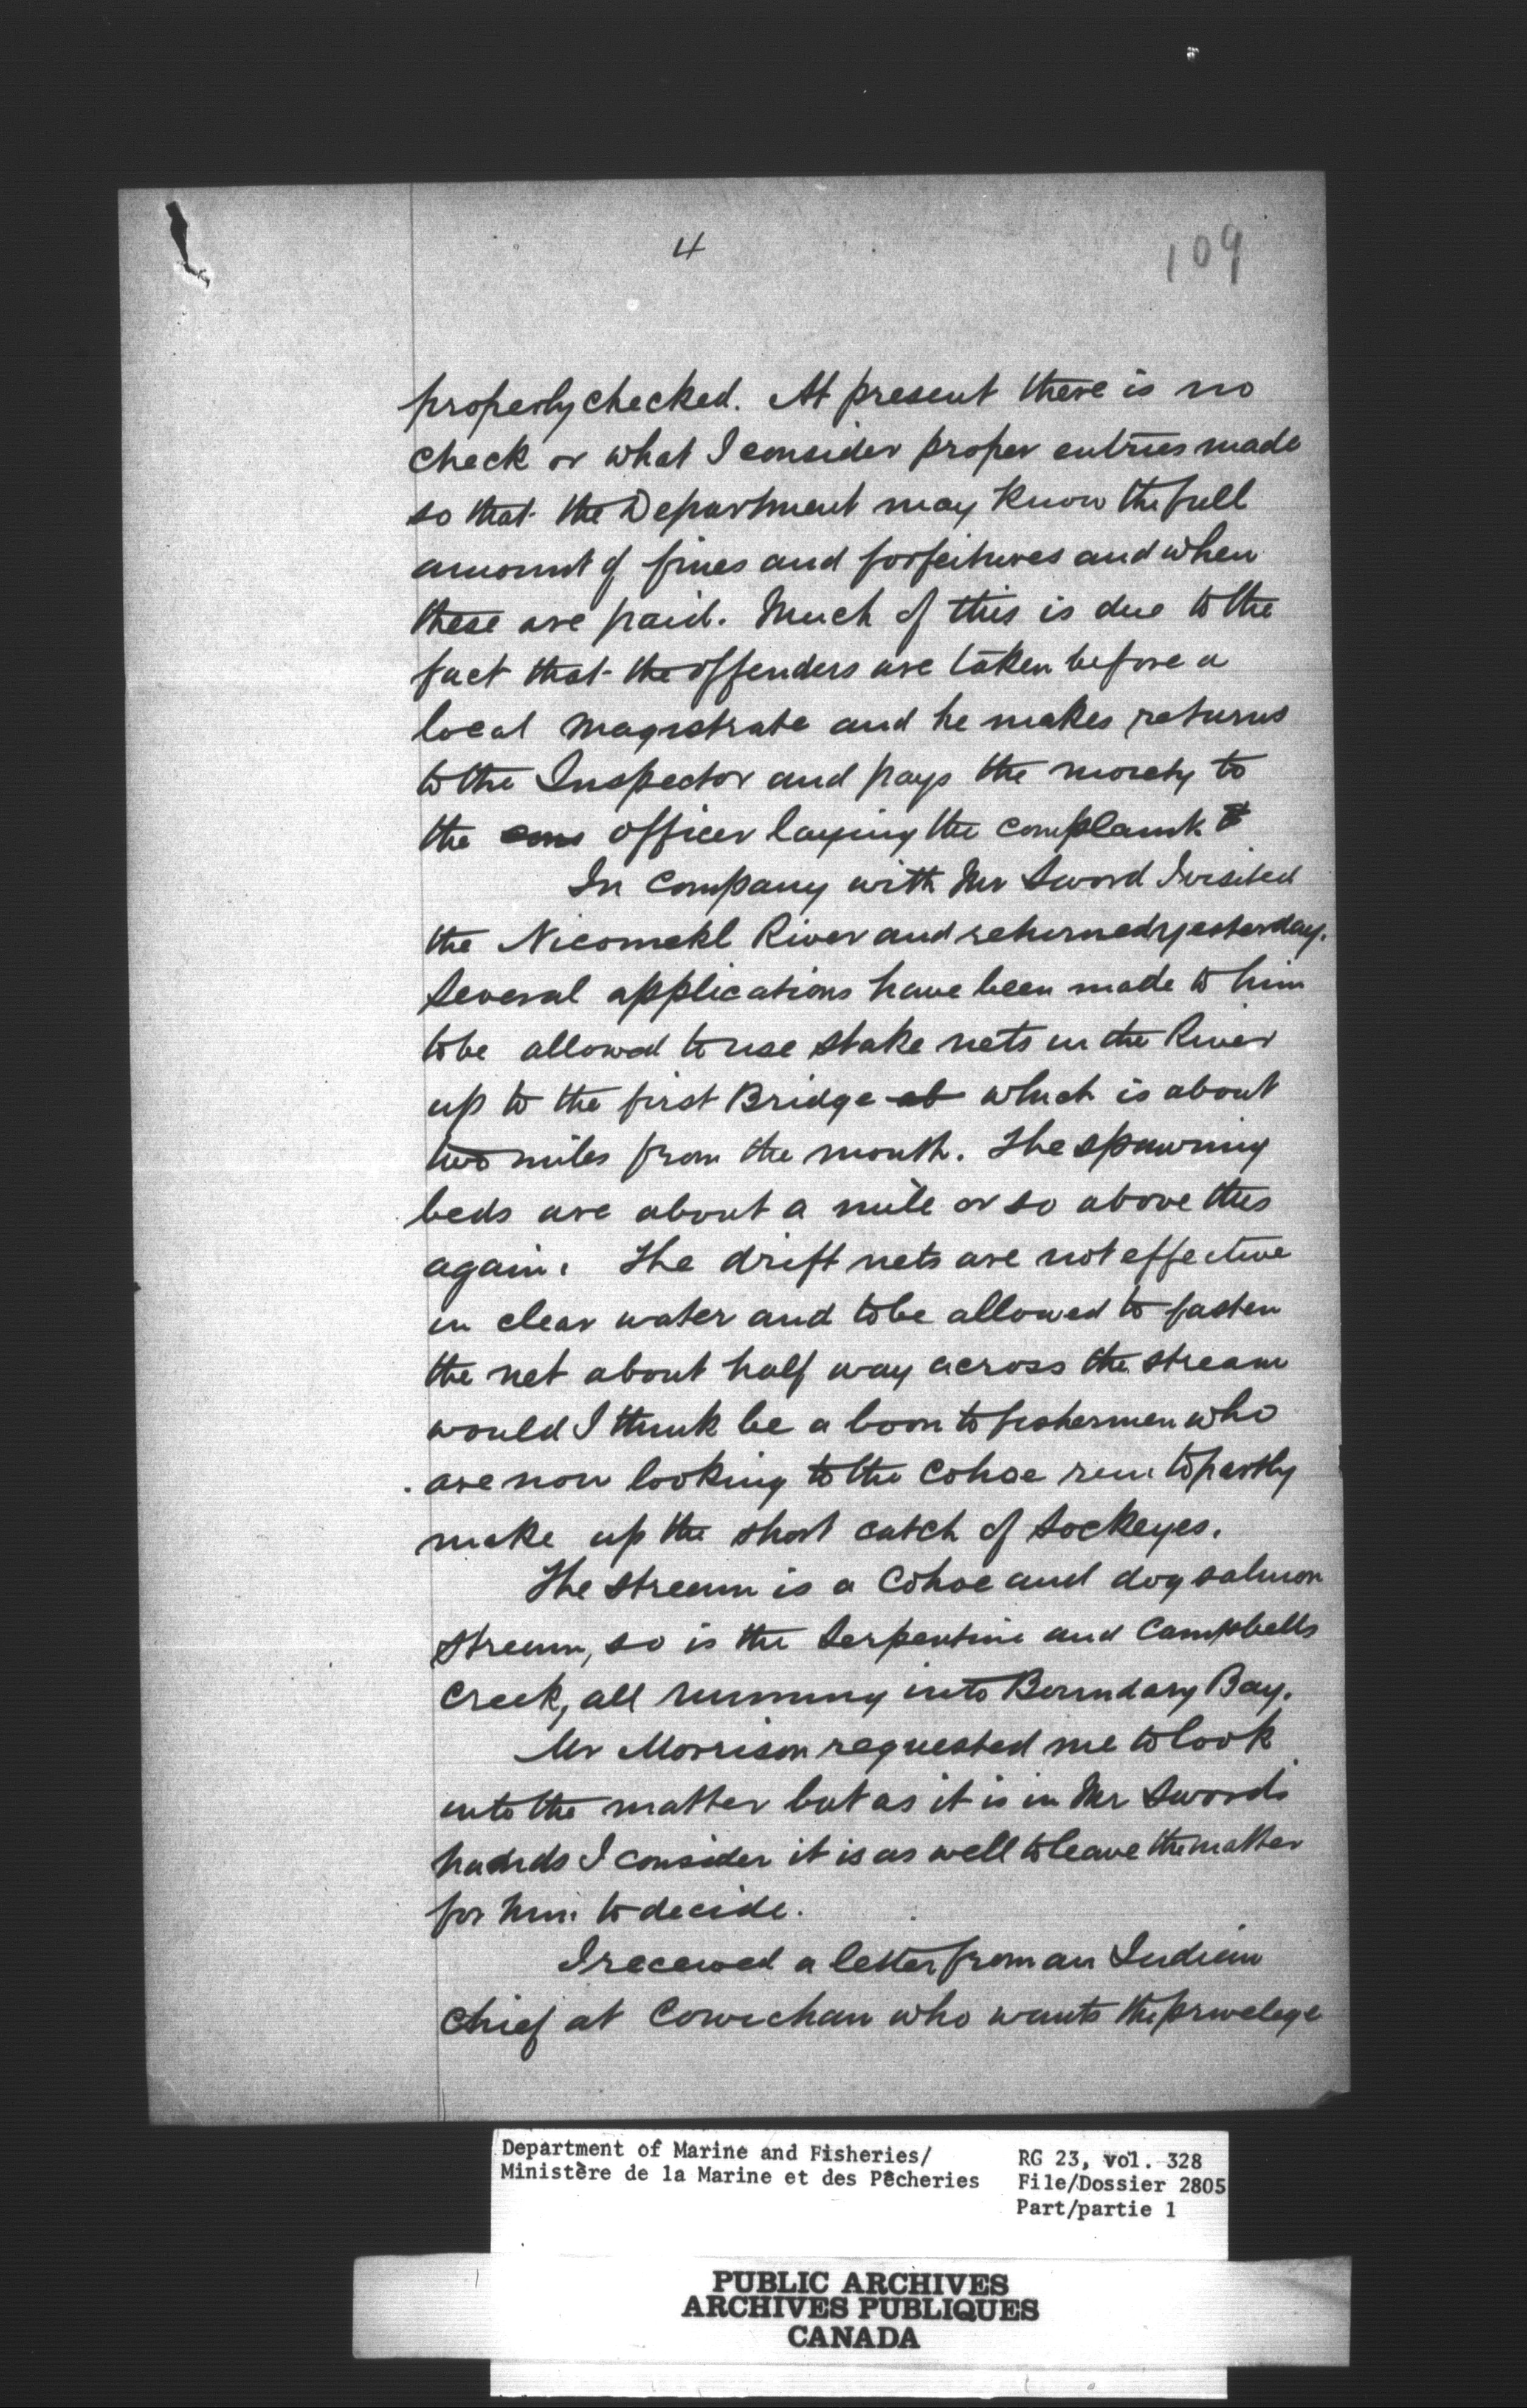 4
109
properly checked. At present there is no
check or what I consider proper entries made
so that the Department may know the full
amount of fines and forfeitures and when
these are paid. Much of this is due to the
fact that the offenders are taken before a
local magistrate and he makes returns
to the Inspector and pays the moiety to
the officer laying the complaint
In company with Mr Sword I visited
the Nicomekl River and returned yesterday.
Several applications have been made to him
to be allowed to use stake nets in the River
up to the first Bridge at which is about
two miles from the mouth. The spawning
beds are about a mile or so above this
again. The drift nets are not effective
in clear water and to be allowed to fasten
the net about half way across the stream
would I think be a boon to fishermen who
are now looking to the Cohoe run to partly
make up the short catch of Sockeyes.
The stream is a Cohoe and dog salmon
stream, so is the Serpentine and Campbells
Creek, all running into Boundary Bay.
Mr Morrison requested me to look
into the matter but as it is in Mr Swords
hands I consider it is as well to leave the matter
for him to decide.
I received a letter from an Indian
Chief at Cowichan who wants the privelege
Department of Marine and Fisheries/
Ministère de la Marine et des Pêcheries
RG 23, vol. 328
File/Dossier 2805
Part/partie 1
PUBLIC ARCHIVES
ARCHIVES PUBLIQUES
CANADA